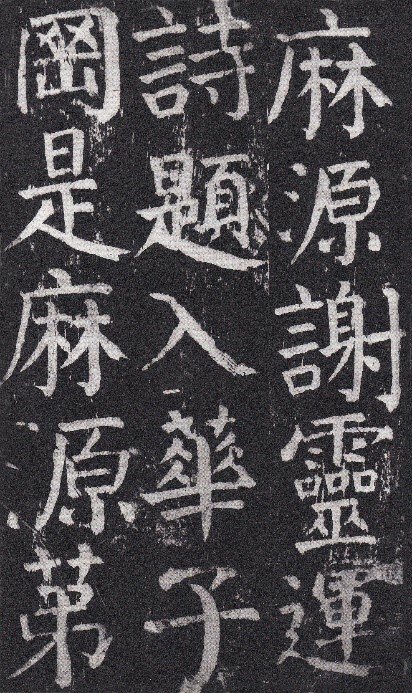 麻源謝靈運
詩題入華子
罡是麻原苐